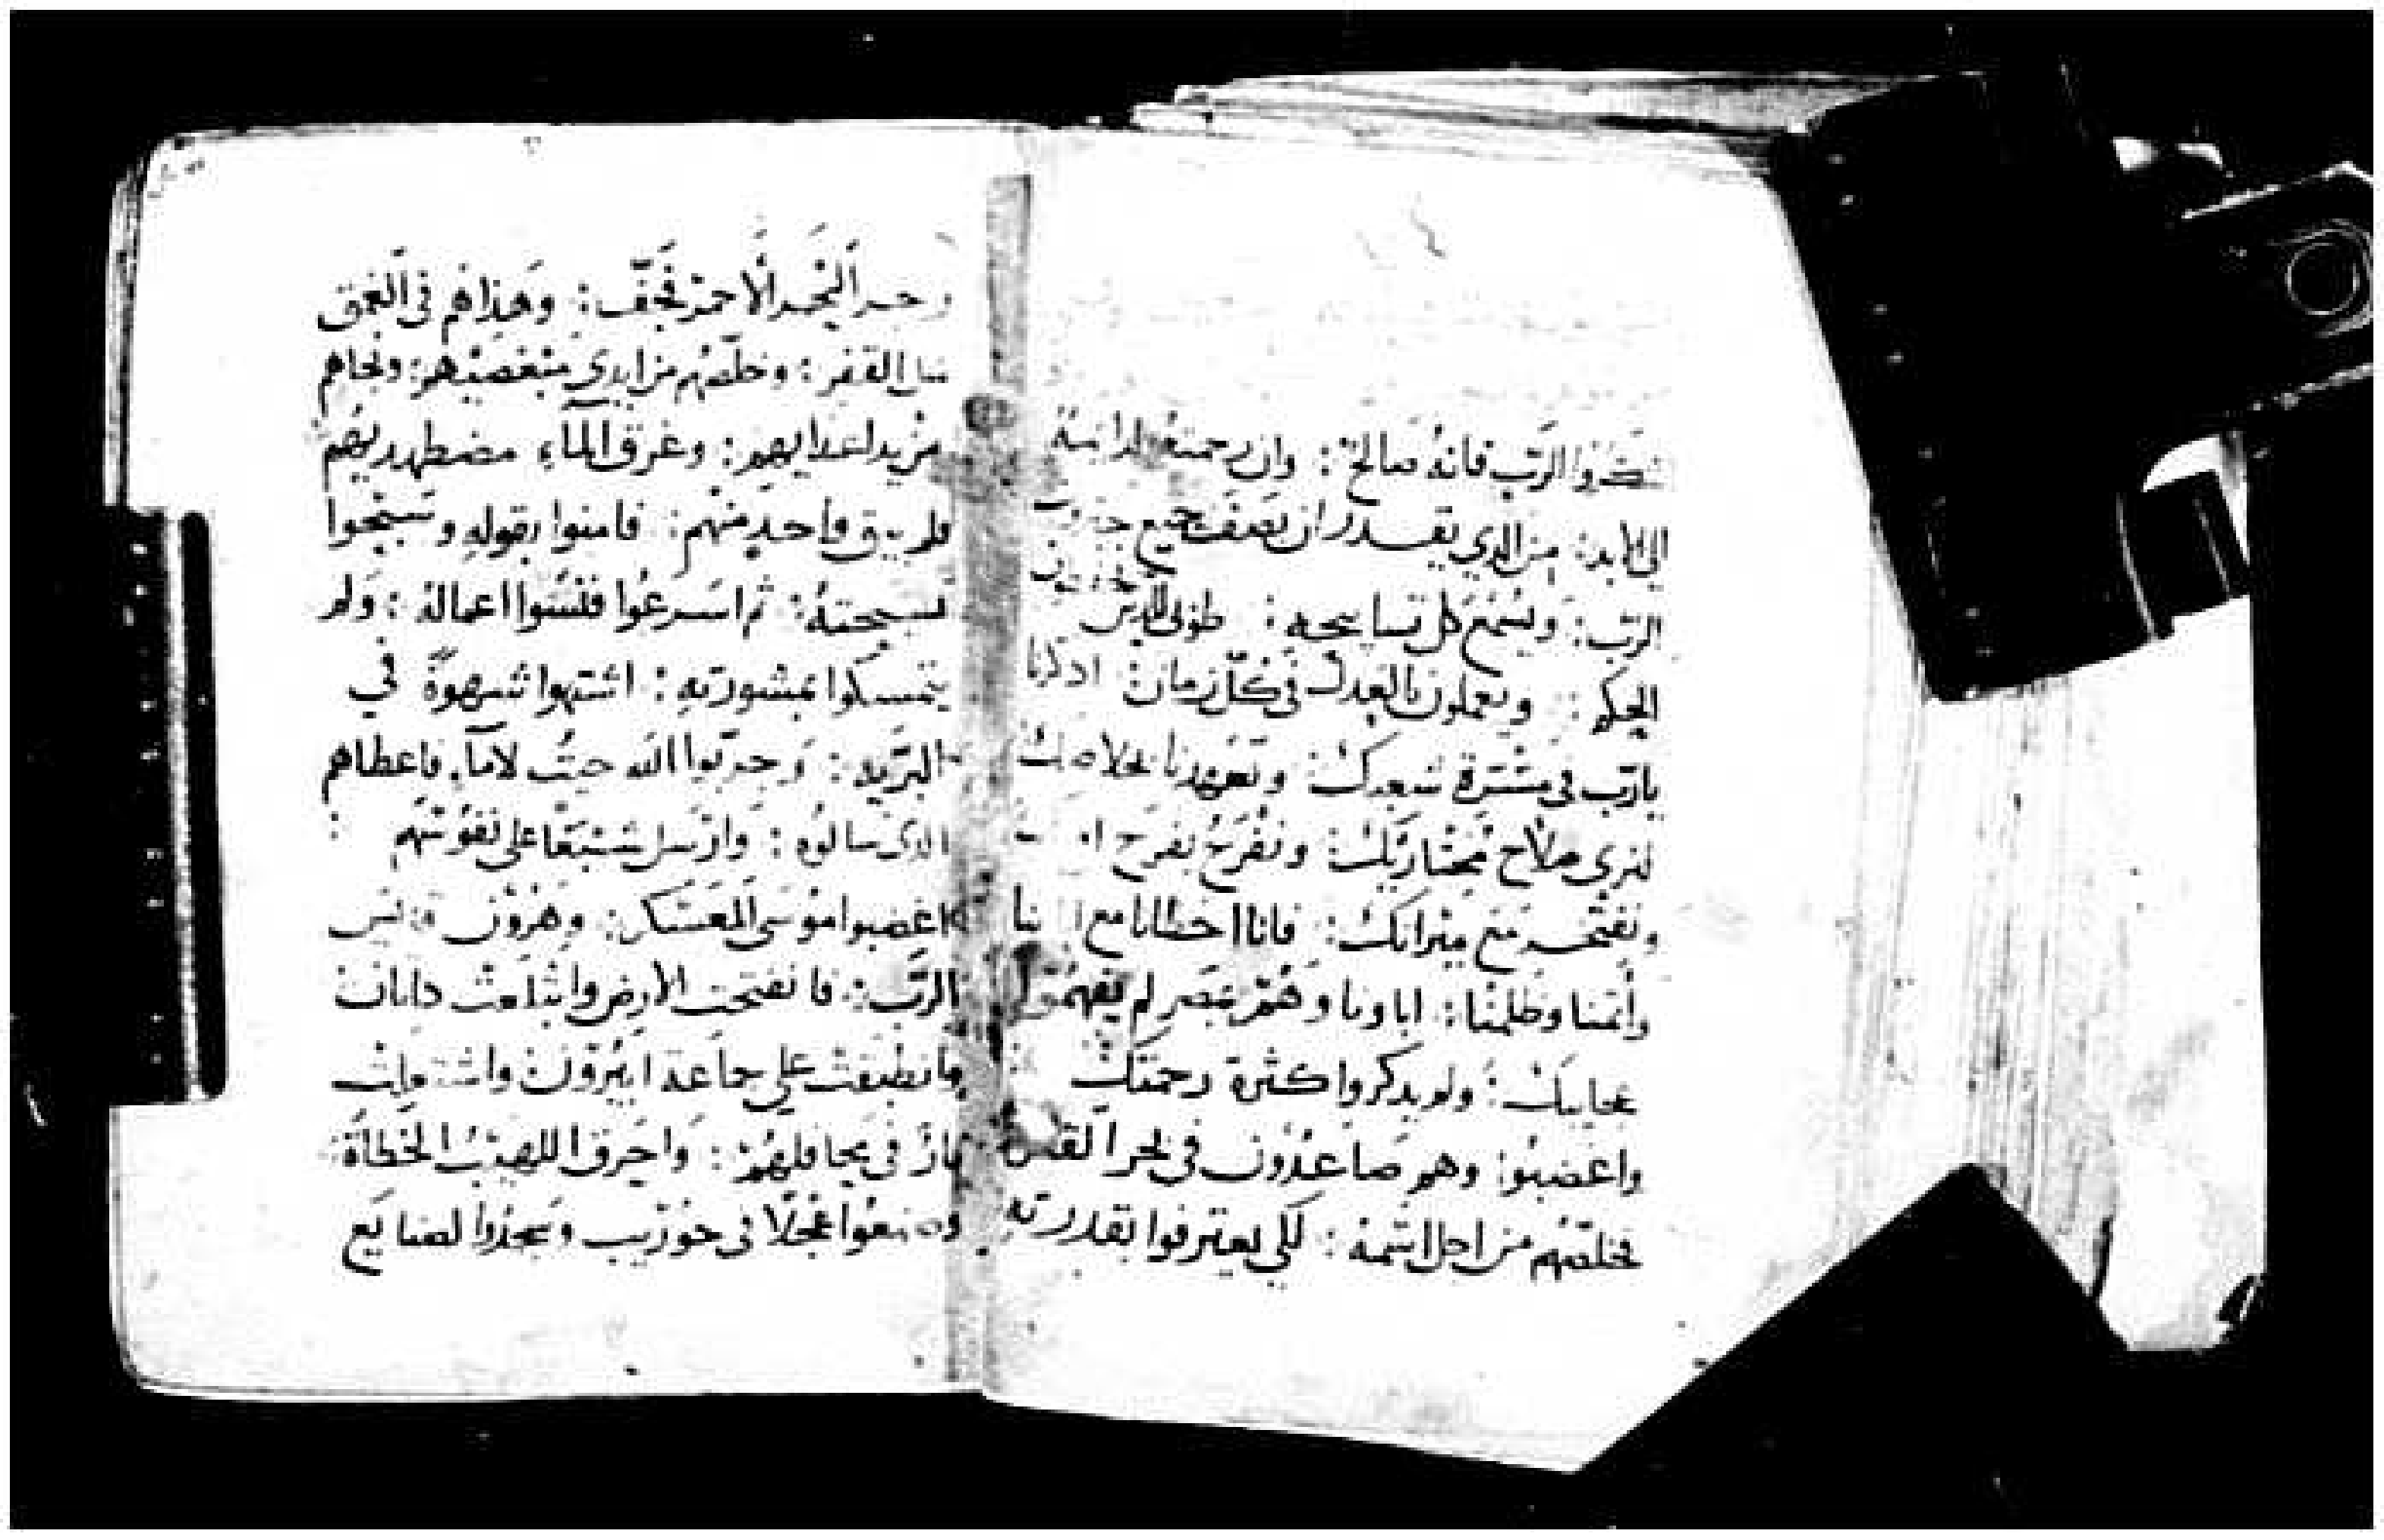 اشكروا الرب فانه صالح : وان رحمته لدايمة
الى الابد : من الذي يقدر ان يصف جميع جبروت
الرب : ويسمع كل تسابيحه : طوبى للذين
الحكم : ويعملون بالعدل في كل زمان اذكرنا
يارب في مسرة شعبك : وتعهدنا بخلاصك
لنرى صلاح مختاريك : ونفرح بفرح
ونفتخر مع ميراتك : فانا اخطانا مع ابائنا
واثمنا وظلمنا : اباونا وهم بمصر لم يفهموا
عجايبك : ولم يذكروا كثرة رحمتك
واغضبوا : وهم صاعدون في بحر القلزم
فخلصهم من اجل اسمه : لكي يعترفوا بقدرته
وجر البحر الاحمر فجف : وهداهم في العمق
مثل القفر : وخلصهم من ايدي مبغضيهم : ونجاهم
من يد اعدايهم : وغرق الماء مضطهديهم
فلم يبق واحد منهم : فامنوا بقوله وسبحوا
تسبيحته : ثم اسرعوا فنسوا اعماله : ولم
يتمسكوا بمشورته : اشتهوا شهوة في
البرية : وجربوا الله حيث لا ماء فاعطاهم
الذي سالوه : وارسل شبعا على نفوسهم :
اغضبوا موسى المعسكر : وهرون قديس
الرب : فانفتحت الارض وابتلعت داثان
وانطبقت على جماعة ابيرون واشتعلت
نار في محافلهم : واحرق اللهيب الخطاة :
وصنعوا عجلا في حوريب وسجدوا لصنايع